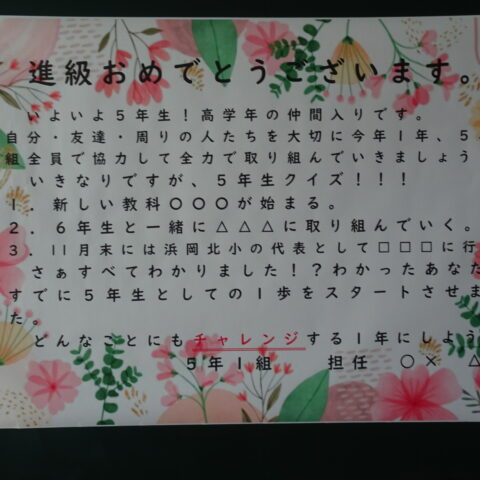 進級おめでとうございます。
いよいよ５年生！高学年の仲間入りです。
自分・友達・周りの人たちを大切に今年１年、５
組全員で協力して全力で取り組んでいきましょう
いきなりですが、５年生クイズ！！！
１．新しい教科〇〇〇が始まる。
２．６年生と一緒に△△△に取り組んでいく。
３．11月末には浜岡北小の代表として□□□に行
さぁすべてわかりました！？わかったあなた
すでに５年生としての１歩をスタートさせま
た。
どんなことにもチャレンジする１年にしよう
５年１組　担任　〇×　△